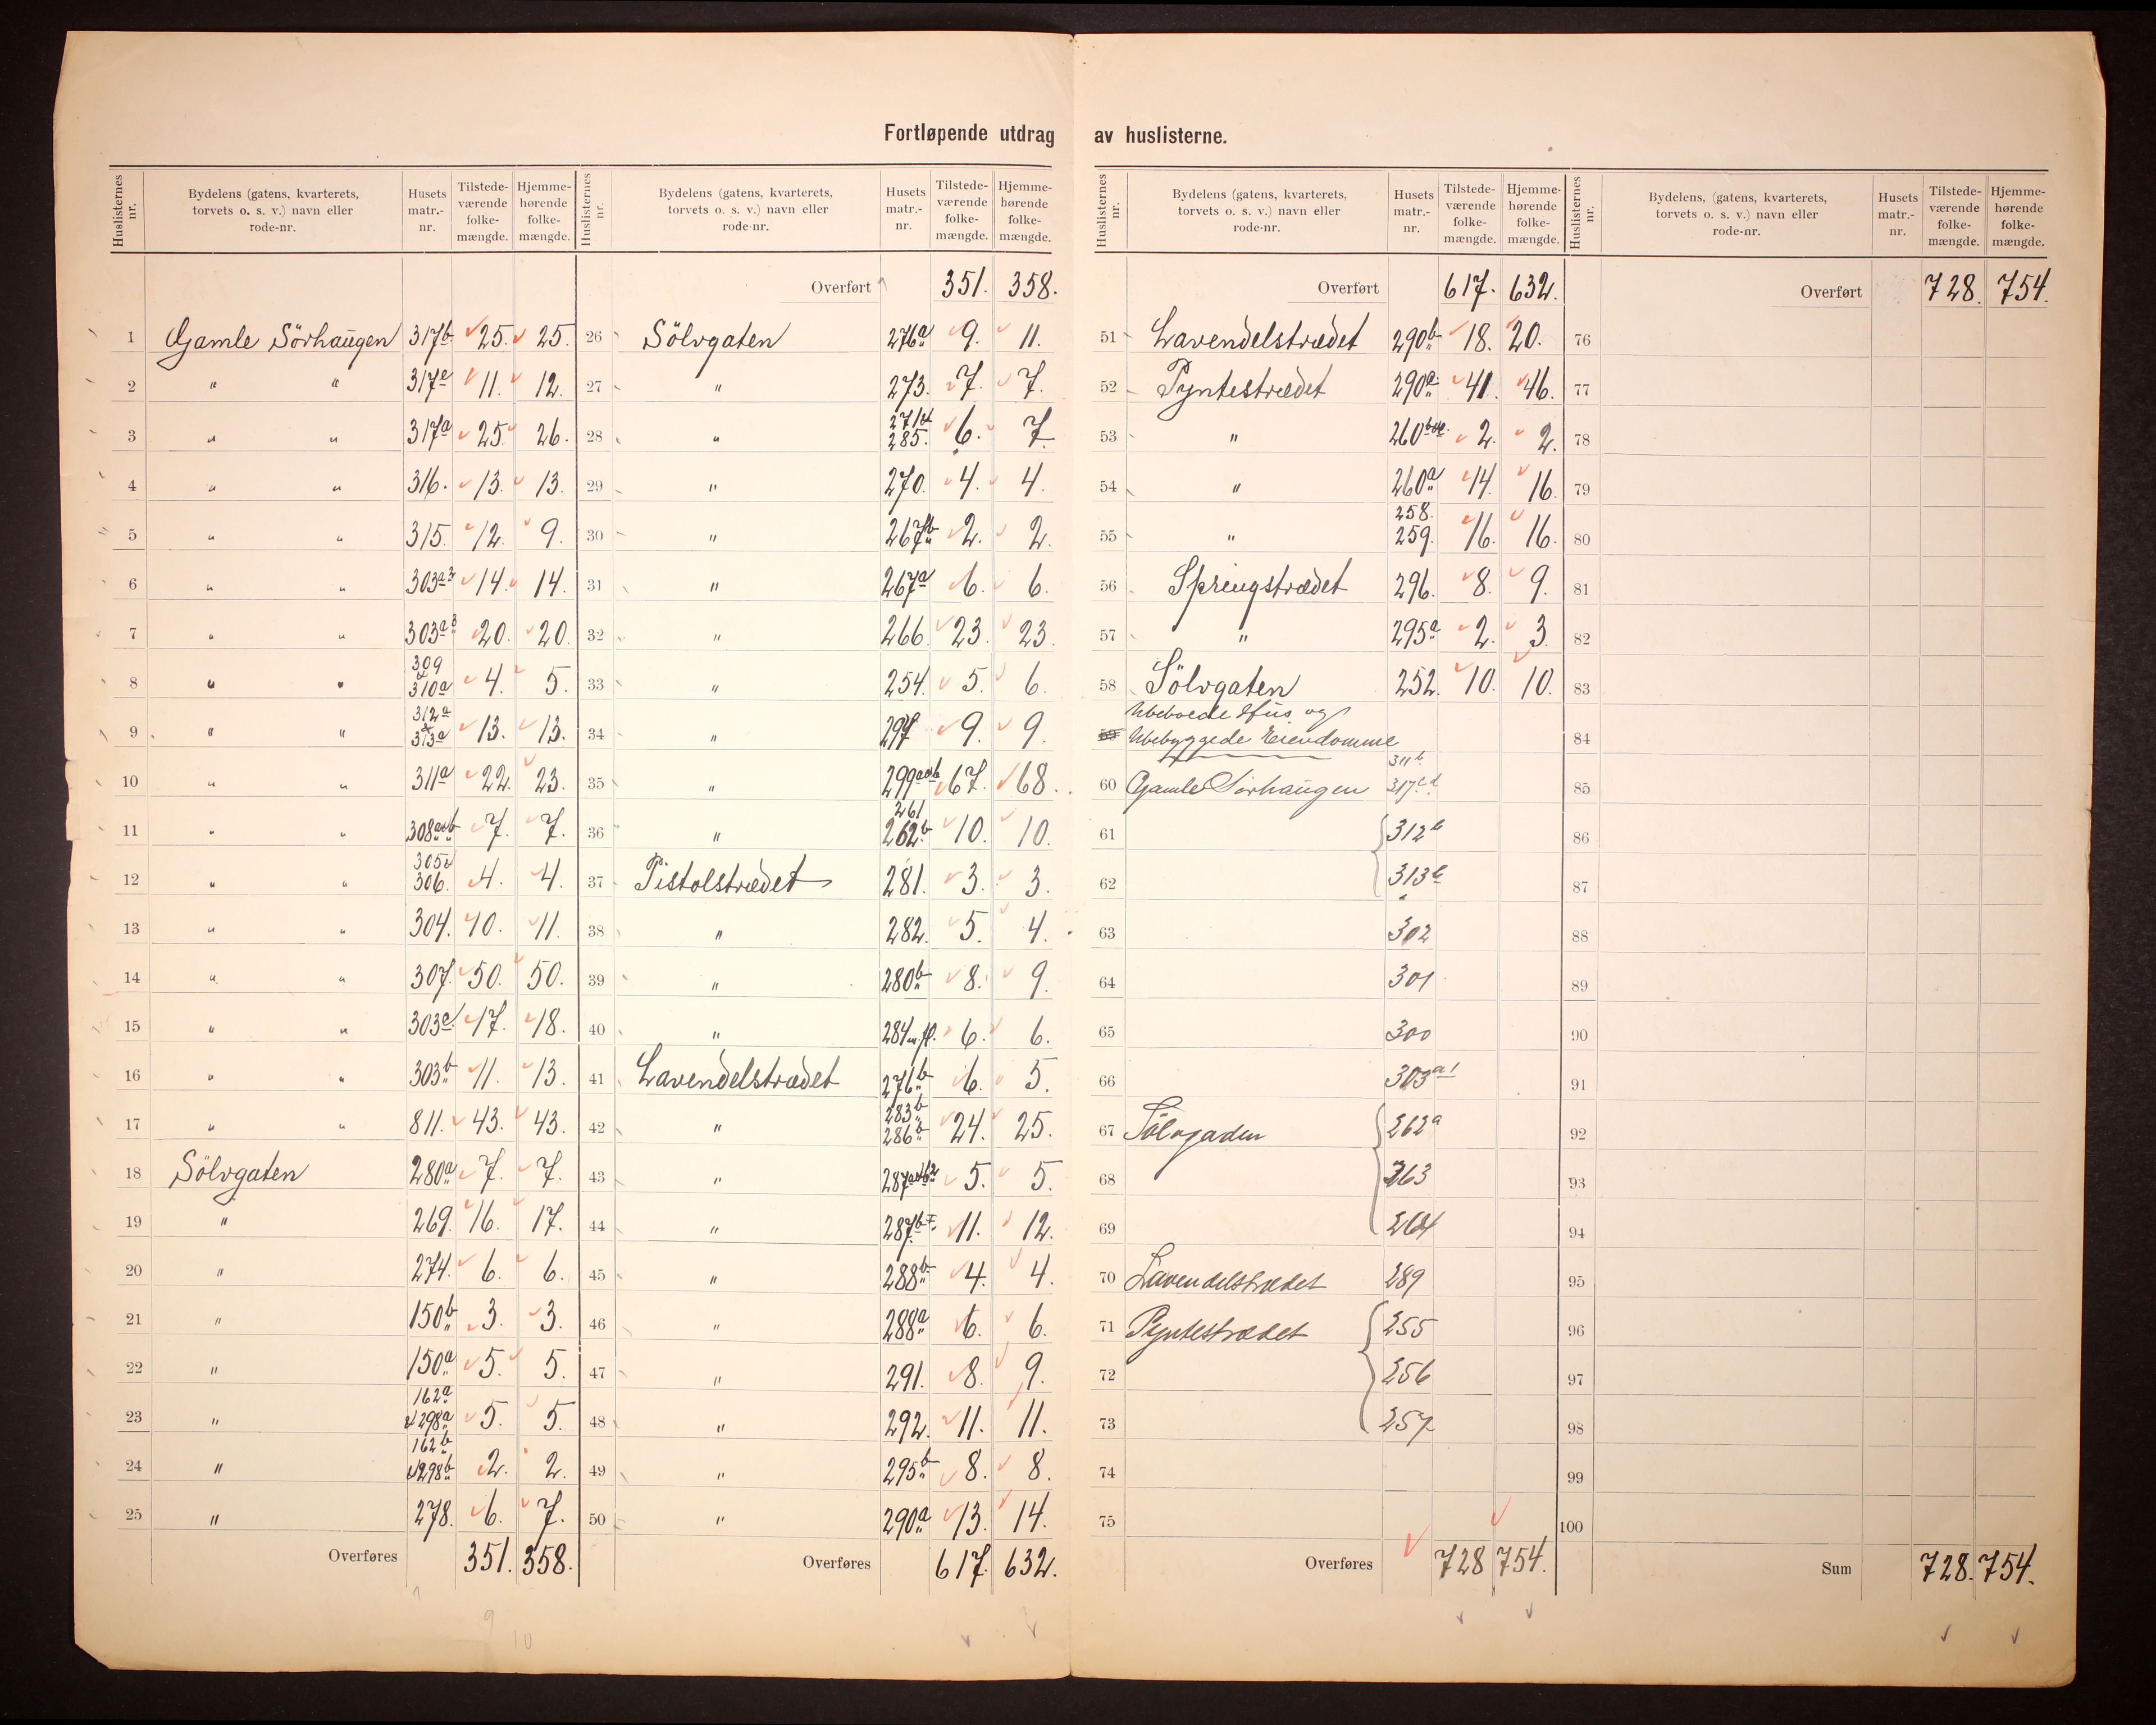 Fortløpende utdrag av huslisterne.
Huslisternes nr. Bydelens (gatens, kvarterets, torvets o. s. v.) navn eller rode-nr. Husets matr.-nr. Tilstede-værende folke-mængde. Hjemme-hørende folke-mængde.
1 Gamle Sörhaugen 317b 25. 25.
2 " " 317e 11. 12.
3 " " 317a 25. 26.
4 " " 316. 13. 13.
5 " " 315. 12. 9.
6 " " 303a2 14. 14.
7 " " 303a3 20. 20.
8 " " 309 & 310a 4. 5.
9 " " 312a & 313a 13. 13.
10 " " 311a 22. 23.
11 " " 308a&b 7. 7.
12 " " 305 & 306. 4. 4.
13 " " 304. 10. 11.
14 " " 307. 50. 50.
15 " " 303c. 17. 18.
16 " " 303b 11. 13.
17 " " 811. 43. 43.
18 Sölvgaten 280a 7. 7.
19 " 269. 16. 17.
20 " 274. 6. 6.
21 " 150b 3. 3.
22 " 150a 5. 5.
23 " 162a & 298a 5. 5.
24 " 162b & 298b 2. 2.
25 " 278. 6. 7.
Overføres 351. 358.
Huslisternes nr. Bydelens (gatens, kvarterets, torvets o. s. v.) navn eller rode-nr. Husets matr.-nr. Tilstede-værende folke-mængde. Hjemme-hørende folke-mængde.
Overført 351. 358.
26 Sölvgaten 276a 9. 11.
27 " 273. 7. 7.
28 " 271 & 285. 6. 7.
29 " 270. 4. 4.
30 " 267b 2. 2.
31 " 267a 6. 6.
32 " 266. 23. 23.
33 " 254. 5. 6.
34 " 297 9. 9.
35 " 299a&b 67. 68.
36 " 261 262b 10. 10.
37 Pistolstrædet 281. 3. 3.
38 " 282. 5. 4.
39 " 280b 8. 9.
40 " 284 m.fl. 6. 6.
41 Lavendelstrædet 276b 6. 5.
42 " 283b 286b 24. 25.
43 " 287a&b2 5. 5.
44 " 287b I. 11. 12.
45 " 288b. 4. 4.
46 " 288a 6. 6.
47 " 291. 8. 9.
48 " 292. 11. 11.
49 " 295b 8. 8.
50 " 290a 13. 14.
Overføres 617. 632.
9
10
Huslisternes nr. Bydelens (gatens, kvarterets, torvets o. s. v.) navn eller rode-nr. Husets matr.-nr. Tilstede-værende folke-mængde. Hjemme-hørende folke-mængde.
Overført 617. 632.
51 Lavendelstrædet 290b 18. 20.
52 Pyntestrædet 290a. 41. 46.
53 " 260b&c. 2. 2.
54 " 260a 14. 16.
55 " 258. 259. 16. 16.
56 Springstrædet 296. 8. 9.
57 " 295a 2. 3.
58 Sölvgaten 252. 10. 10.
Ubeboede Hus og
59 Ubebyggede Eiendomme
60 Gamle Sörhaugen 311b. 317c.d.
61 312b
62 313b
63 302
64 301
65 300
66 303a1
67 Sölvgaden 262a
68 263
69 264
70 Lavendelstrædet 289
71 Pyntestrædet 255
72 256
73 257
74
75
Overføres 728 754.
Huslisternes nr. Bydelens, (gatens, kvarterets, torvets o. s. v.) navn eller rode-nr. Husets matr.-nr. Tilstede-værende folke-mængde. Hjemme-hørende folke-mængde.
Overført 728. 754.
76
77
78
79
80
81
82
83
84
85
86
87
88
89
90
91
92
93
94
95
96
97
98
99
100
Sum 728. 754.